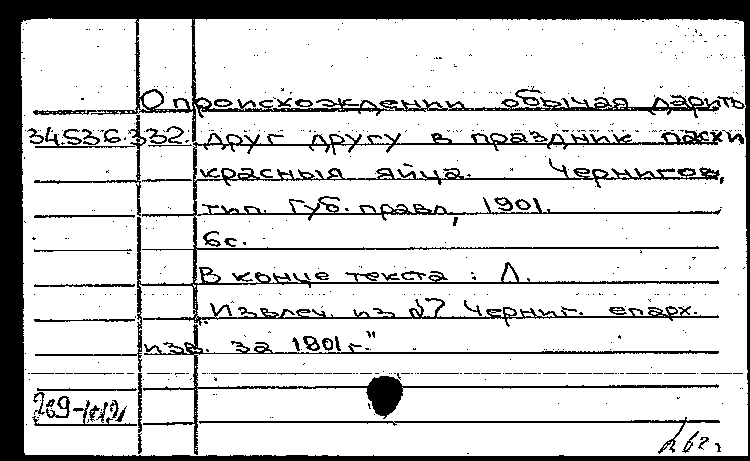 О происхождении обычая дарить
34.536.332. друг другу в праздник пасхи
красныя яйца. Чернигов,
тип. Губ. правл, 1901.
6с.
В конце текста: Л.
"Извлеч. из №7 Черниг. епарх.
изв. за 1901г."